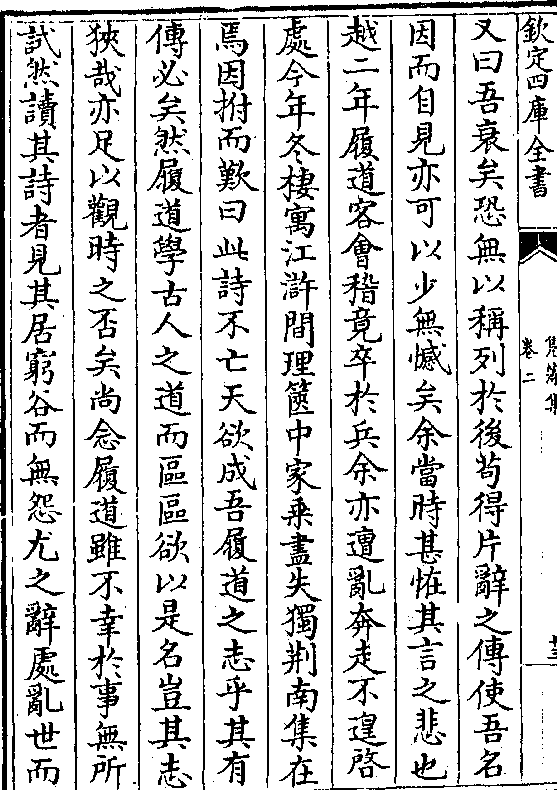 欽定四庫全書
卷二
又曰吾衰矣恐無以稱列於後茍得片辭之傳使吾名
因而自見亦可以少無憾矣余當時甚恠其言之悲也
越二年履道客會稽竟卒於兵余亦遭亂奔走不遑啓
處今年冬棲寓江滸間理篋中家乗盡失獨荆南集在
焉因拊而歎曰此詩不亡天欲成吾履道之志乎其有
傳必矣然履道學古人之道而區區欲以是名豈其志
狹哉亦足以觀時之否矣尚念履道雖不幸於事無所
試然讀其詩者見其居窮谷而無怨尤之辭處亂世而